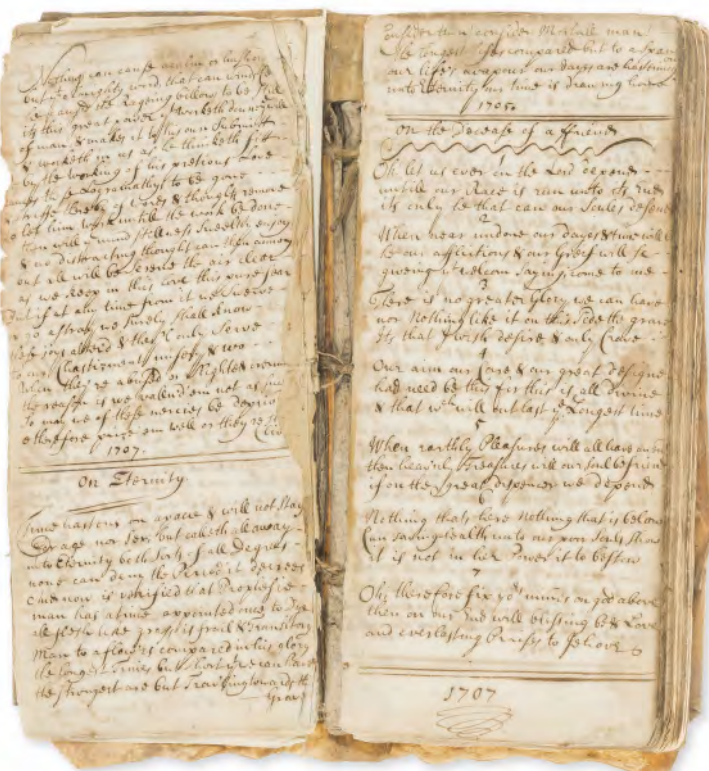 Nothing can cause a calm or hush
but Almighty word, that can wind
cause the Rageing billows to be still
its this great power worketh
of man & makes it to his own Submit
& worketh in us as he thinketh fitt
by the working of his pretious Love
to be gone
of words & thoughts remove
let him work untill the work be done
then will mind stillness Sweetly enjoy
& no distracting thought can then annoy
but all will be serene the air cleer
as we keep in this Love this pure fear
but if at any time from it we Swerve
or go astray we Surely shall know
these joys attend & that only serve
to our Chastizment misery & wo
When they're abused
the reason is we vallued em not as
so may we of these mercies be depriv
therefore prize em well or they
1707.
On Eternity
Time hastens on apace & will not Stay
for age nor Sex but taketh all away
into Eternity both Sorts of all Degrees
none can deny the Period it decrees
is verified that Prophesie
man has a time appointed once to Dye
all flesh like grass is frail & transitory
Man to a flower compared in his glory
the longest Times but short we can have
the strongest are but Travling towards the
Grave
Consider then consider Mortall man
the longest lifes compared but to a span
our life's a vapour our days are hastning
into Eternity our time is drawing
1705
On the Decease of a ffriend
1
Oh let us ever on the Lord depend
untill our Race is run unto its End
its only he that can our Soules defend
2
When near undone our dayes & time will
be our afflictions & our Greif will
giveing a welcom Saying come to me
3
There is no greater Glory we can have
nor Nothing like it on this Side the grave
Its that I wish desire & only Crave
4
Our aim our Care & our great designe
had need be this for this is all Divine
& that wch will out last ye Longest time
5
When earthly Pleasures will all have an end
then heavnly Treasures will our Soul befriend
if on the great dispencer we depend
6
Nothing thats here Nothing that is below
Can saving health unto our poor Souls Show
it is not in their Power it to bestow
7
Oh therefore fix yor minds on god above
then on our End will blessing be & Love
and everlasting Praises to Jehove
1707